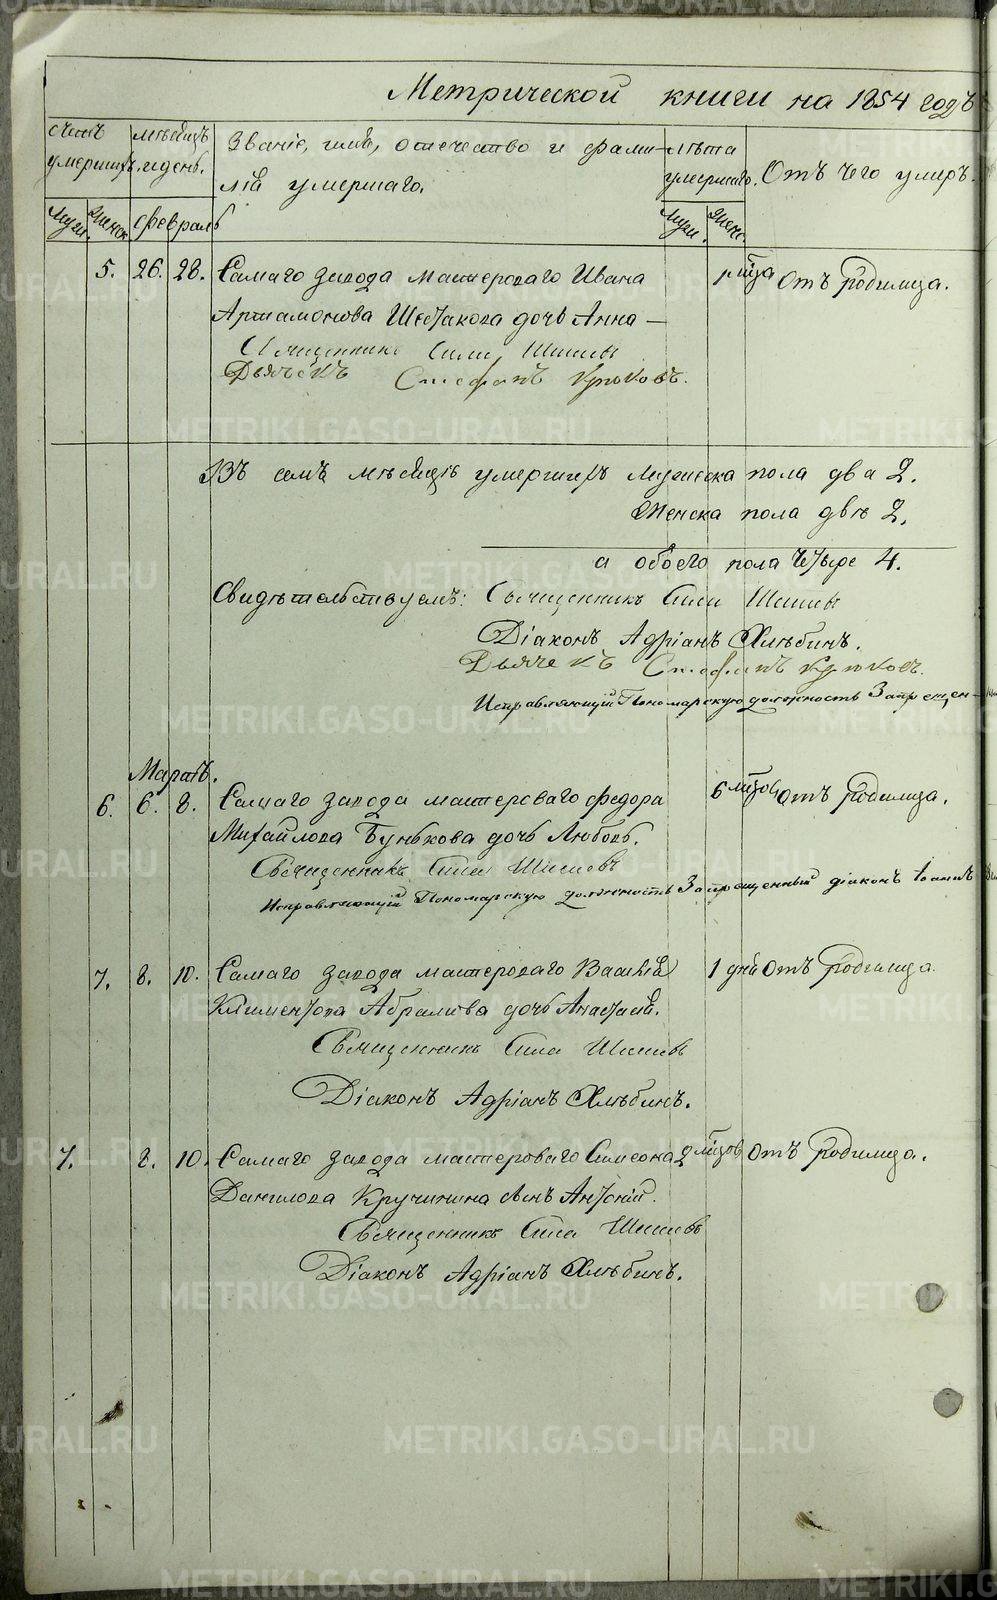 Метрической книги на 1854 годъ
счетъ умершихъ. мѣсяцъ и день. Званіе, имя, отечество и фами- лѣта умершаго. Отъ чего умиръ.
лія умершаго.
Муж. Женск. Февраль Муж. Женс.
5. 26. 28. Самаго завода мастероваго Ивана 1 мѣсяца Отъ Родимца.
Артамонова Шестакова дочь Анна
Священникъ Сила Шишевъ
Дьячекъ Стефанъ Крюковъ.
Въ семъ мѣсяцѣ умершихъ мужеска пола два 2.
Женска пола двѣ 2.
а обоего пола четыре 4.
Свидѣтельствуемъ: Священникъ Сила Шишевъ
Діаконъ Адріанъ Хлѣбинъ.
Дьячекъ Стефанъ Крюковъ.
Исправляющій Пономарскую должность Запрещен-
Мартъ.
6. 6. 8. Самаго завода мастероваго Федора 6 мѣсяцовъ Отъ Родимца.
Михайлова Бунькова дочь Любовь.
Священникъ Сила Шишевъ
Исправляющій Пономарскую должность Запрещенный діаконъ Іоаннъ
7. 8. 10. Самаго завода мастероваго Василія 1 дня Отъ Родимца.
Климентова Абрамова дочь Анастасія.
Священникъ Сила Шишевъ
Діаконъ Адріанъ Хлѣбинъ.
7. 8. 10. Самаго завода мастероваго Симеона 2 мѣсяцовъ Отъ Родимца.
Данилова Кручинина сынъ Антоній.
Священникъ Сила Шишевъ
Діаконъ Адріанъ Хлѣбинъ.
METRIKI.GASO-URAL.RU